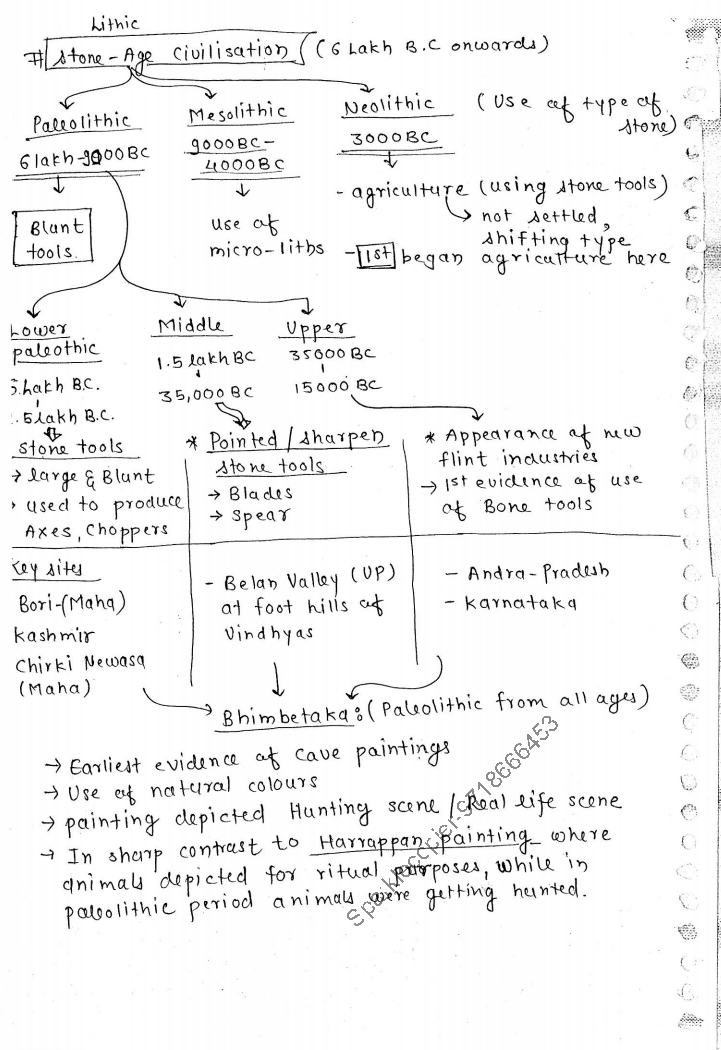 Lithic
# Stone-Age Civilisation (6 Lakh B.C onwards)
Paleolithic
6 lakh-9000 BC
Blunt
tools.
Mesolithic
9000BC-
4000BC
use of
micro-liths
Neolithic
3000BC
(Use of type of
stone)
- agriculture (using stone tools)
→ not settled,
shifting type
- 1st began agriculture here
Lower
paleothic
Lakh B.C.
5 lakh B.C.
Stone tools
→ large & Blunt
used to produce
Axes, Choppers
Middle
1.5 lakh BC
35,000 BC
* Pointed / sharpen
stone tools
→ Blades
→ Spear
Upper
35000 BC
15000 BC
* Appearance of new
flint industries
→ 1st evidence of use
of Bone tools
Key sites
Bori-(Maha)
Kashmir
Chirki Newasa
(Maha)
- Belan Valley (UP)
at foot hills of
Vindhyas
- Andra-Pradesh
- Karnataka
Bhimbetaka: (Paleolithic from all ages)
→ Earliest evidence of cave paintings
→ Use of natural colours
→ painting depicted Hunting scene / Real life scene
→ In sharp contrast to Harrappan painting where
animals depicted for ritual purposes, while in
paleolithic period animals were getting hunted.